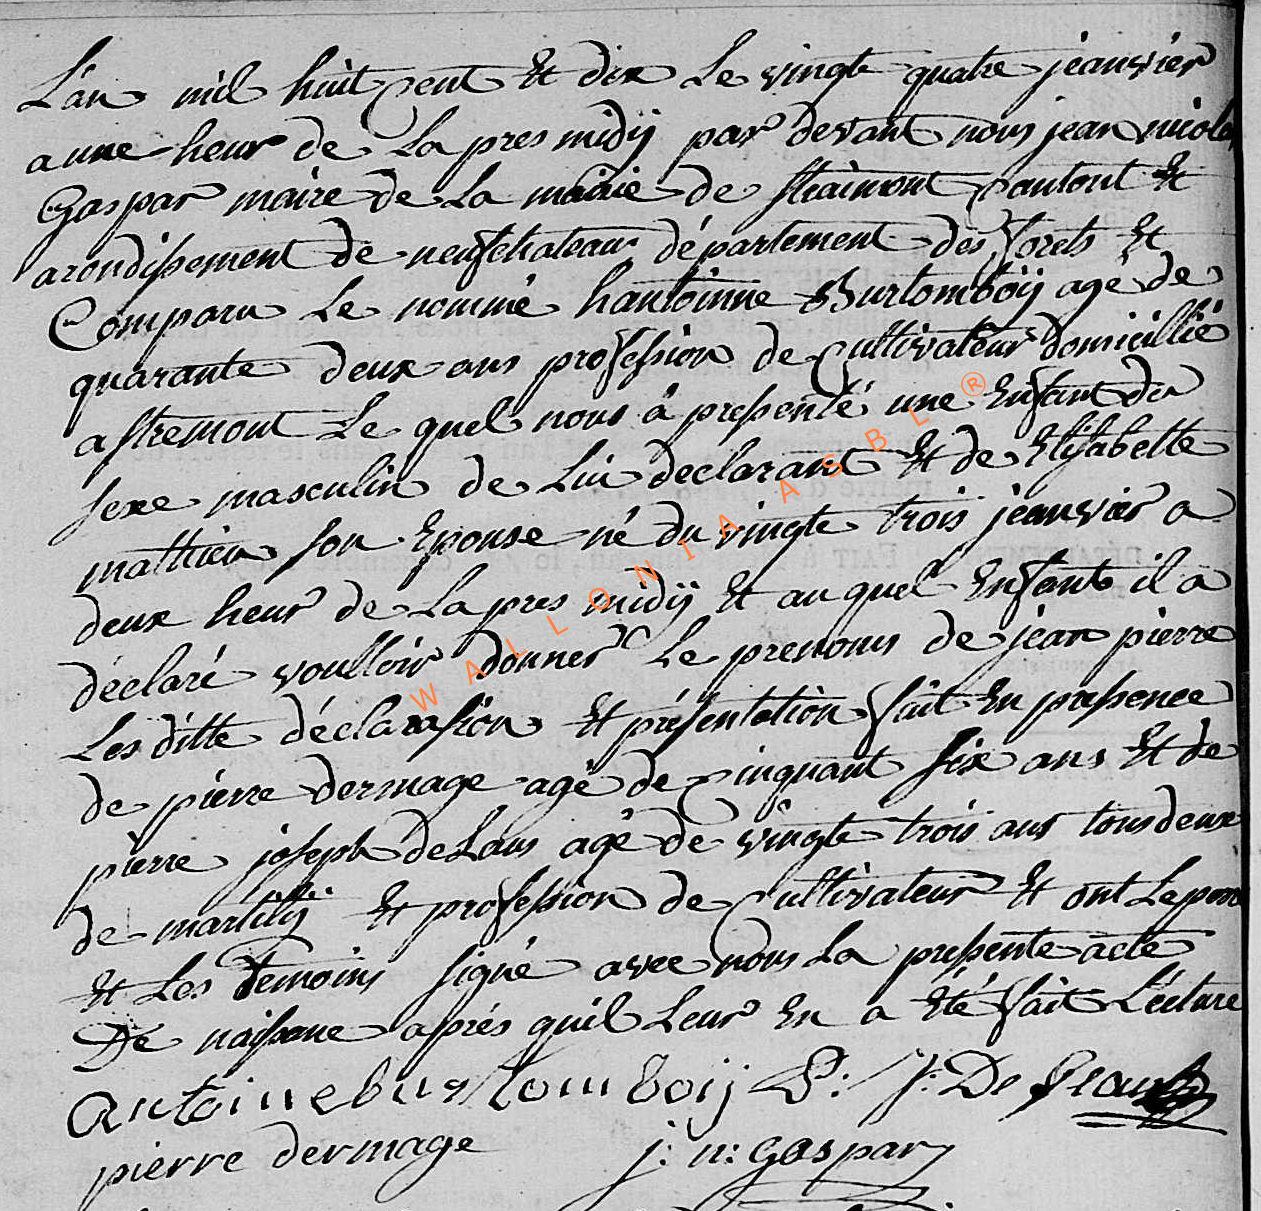 L'an mil huit cent Et dix Le vingte quatre jeanvier
a une heur de La pres midÿ par devant nous jean nicolas
Gaspar maire de La mairie de straimont cantont Et
arondissement de neufchateau département des forets Et
Comparu Le nommé hantoinne Burtomboÿ agé de
quarante deux ans profession de Cultivateur domicillié
a stremont Le quel nous à pressenté une Enfant du
sexe masculin de Lui declarant Et de Elisabette
mathieu son Epouse né du vingte trois jeanvier a
deux heur de La pres midÿ Et au quel Enfant il a
déclaré voulloir donner Le prenoms de jean pierre
Les ditte déclarasion Et présentation fait En pressence
de pierre dermage agé de cinquant six ans Et de
pierre joseph deLaus agé de vingte trois ans tous deux
de martillÿ Et profession de Cultivateur Et ont Le pere
Et Les Temoins signé avec nous La pressente acte
De naissane aprés quil Leur En a Eté fait Lécture
antoine burtomboij P: J: De
pierre dermage j: n: gaspar
WALLONIA ASBL ®